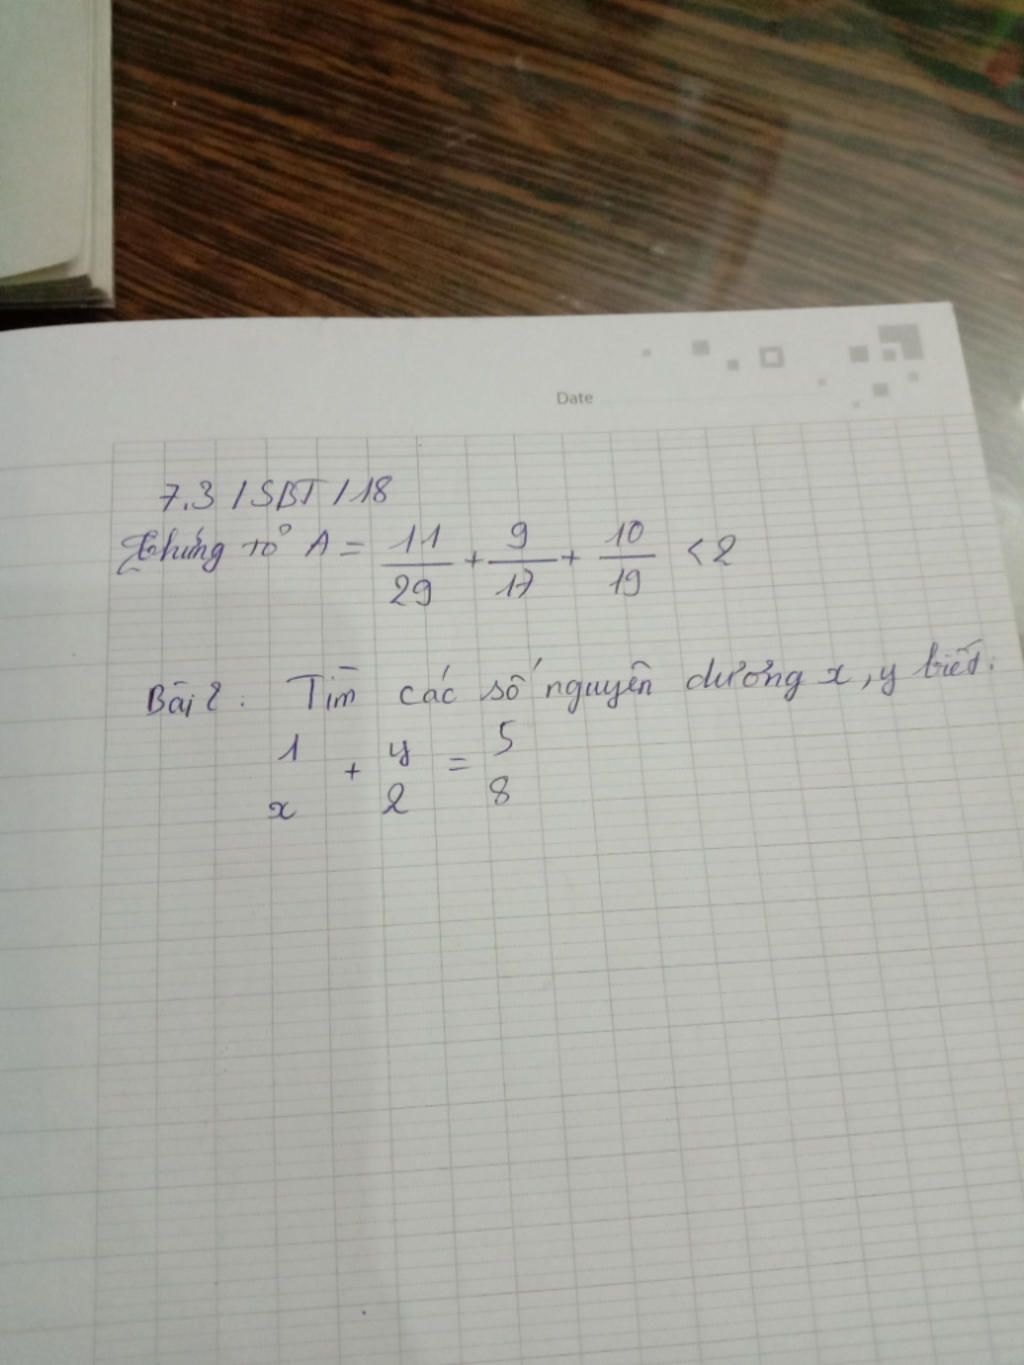 Date
7.3 / SBT / 18
Chứng tỏ A = 11/29 + 9/17 + 10/19 < 2
Bài 2 : Tìm các số nguyên dương x, y biết:
1/x + y/2 = 5/8